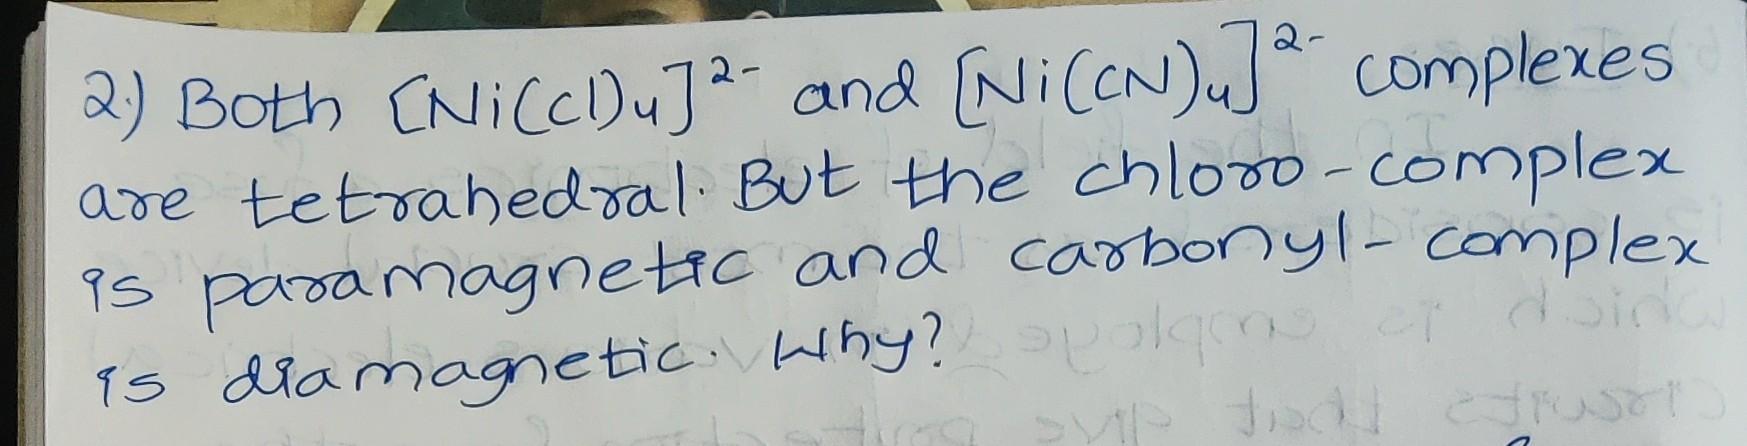 2.) Both [Ni(Cl)4]2- and [Ni(CN)4]2- complexes
are tetrahedral. But the chloro-complex
is paramagnetic and carbonyl-complex
is diamagnetic. Why?